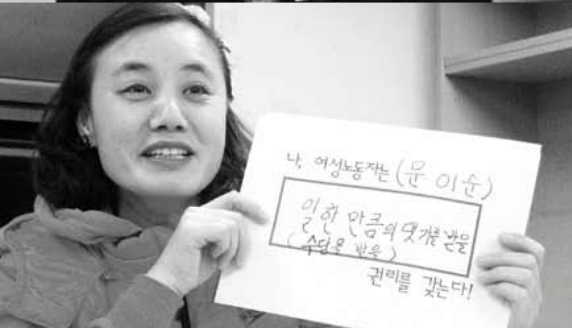 나, 여성노동자는 (문 이순)
일한 만큼의 댓가를 받을
(수당을 받을)
권리를 갖는다!